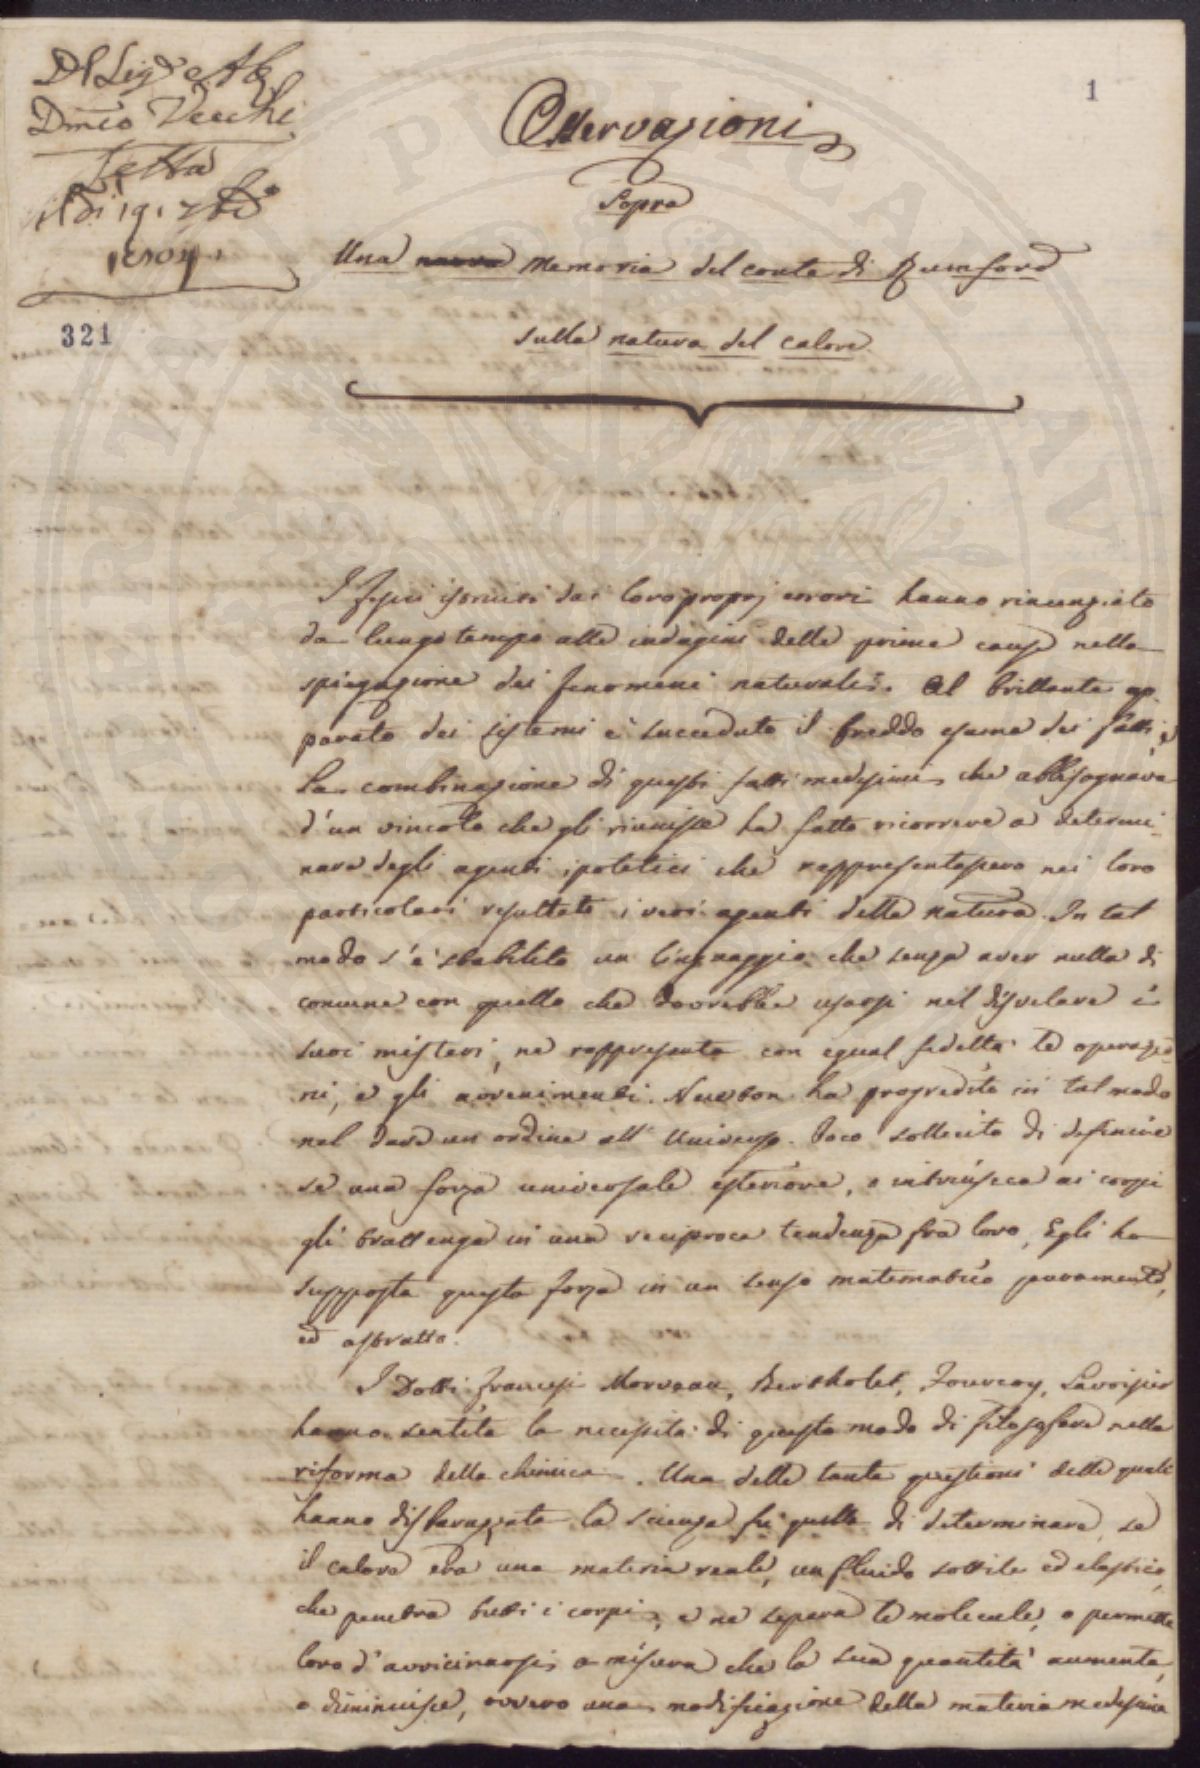 Del Sig.r Ab.
Dm̃co Vecchi
Letta
il dì 19.
1
321
Osservazioni
Sopra
Una nuova Memoria del conte di Rumford
sulla natura del calore
I fisici istruiti dai loro proprj errori hanno rinunziato
da lungo tempo alle indagini delle prime cause nella
spiegazione dei fenomeni naturali. Al brillante ap
parato dei sistemi è succeduto il freddo esame dei fatti, e
la combinazione di questi fatti medesimi, che abbisognava
d'un vincolo che gli riunisse ha fatto ricorrere a determi-
nare degli agenti ipotetici che rappresentassero nei loro
particolari resultati i veri agenti della natura. In tal
modo s'è stabilito un linguaggio che senza aver nulla di
comune con quello che dovrebbe usarsi nel disvelare i
suoi misteri, ne rappresenta con egual fedeltà le operazio-
ni, e gli avvenimenti. Newton ha progredito in tal modo
nel dare un ordine all' Universo. Poco sollecito di definire
se una forza universale esteriore, o intrinseca ai corpi
gli trattenga in una reciproca tendenza fra loro, Egli ha
supposta questa forza in un senso matematico puramente,
ed astratto.
I Dotti Francesi Morveau, Berthollet, Fourcroy, Lavoisier
hanno sentita la necessità di questo modo di filosofare nella
riforma della chimica. Una delle tante questioni delle quali
hanno disbarazzata la scienza fu quella di determinare, se
il calore era una materia reale, un fluido sottile ed elastico,
che penetra tutti i corpi, e ne separa le molecule, o permette
loro d'avvicinarsi, a misura che la sua quantità aumenta,
o diminuisce, ovvero una modificazione della materia medesima